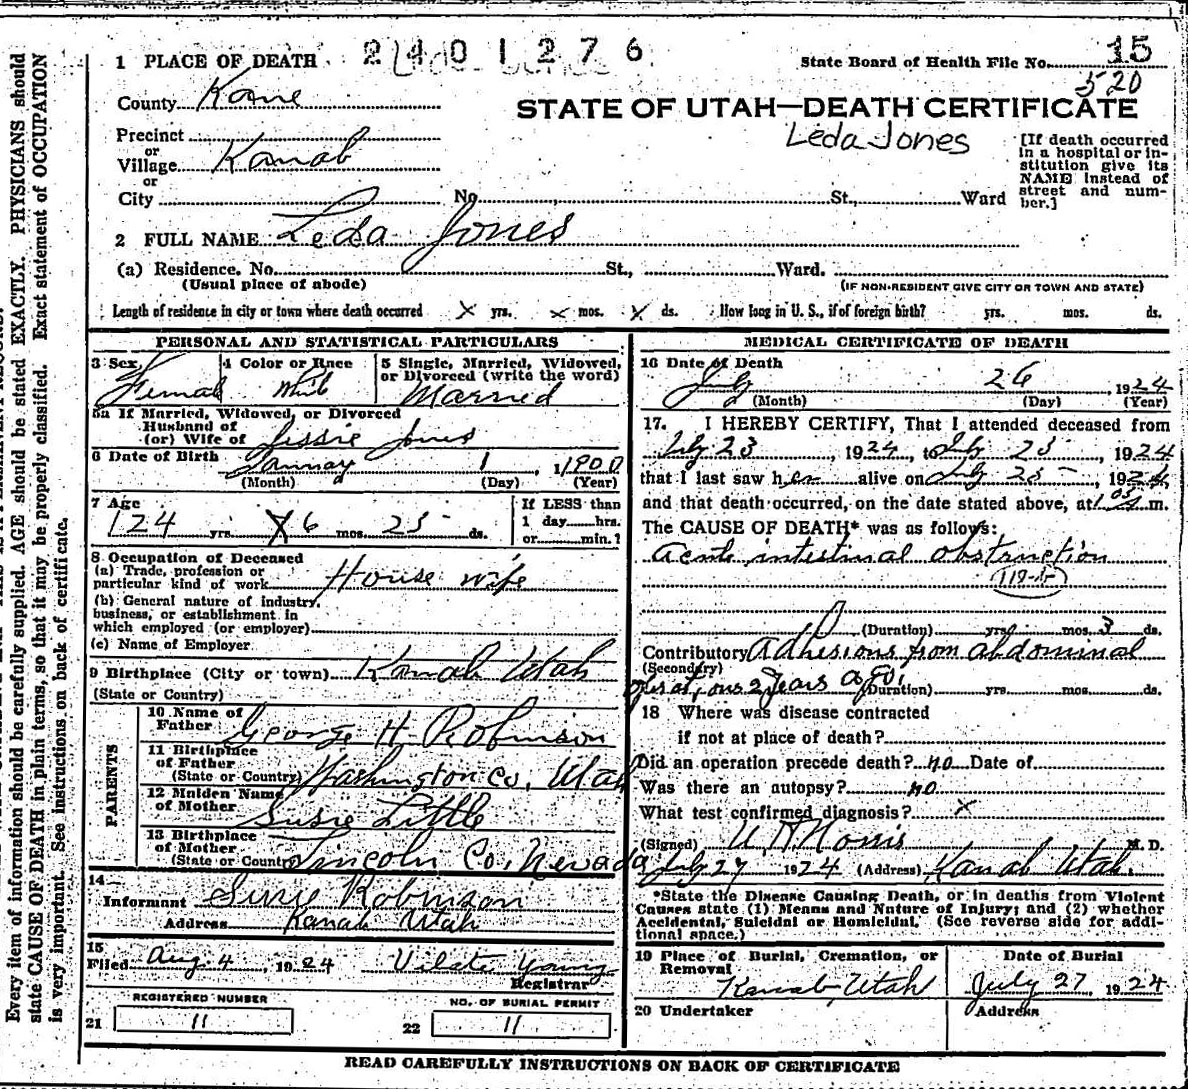 2401276
15
1 PLACE OF DEATH
State Board of Health File No. 520
County Kane
STATE OF UTAH—DEATH CERTIFICATE
Leda Jones
Precinct
or
Village Kanab
or
City No. St., Ward
[If death occurred
in a hospital or in-
stitution give its
NAME instead of
street and num-
ber.]
2 FULL NAME Leda Jones
(a) Residence. No. St., Ward.
(Usual place of abode)
(IF NON-RESIDENT GIVE CITY OR TOWN AND STATE)
Length of residence in city or town where death occurred X yrs. X mos. X ds. How long in U. S., if of foreign birth? yrs. mos. ds.
PERSONAL AND STATISTICAL PARTICULARS
3 Sex Female
4 Color or Race Whit
5 Single, Married, Widowed,
or Divorced (write the word)
Married
5a If Married, Widowed, or Divorced
Husband of
(or) Wife of Jessie Jones
6 Date of Birth January 1 1900
(Month) (Day) (Year)
7 Age
24 yrs. 6 mos. 25 ds.
If LESS than
1 day hrs.
or min.?
8 Occupation of Deceased
(a) Trade, profession or
particular kind of work House wife
(b) General nature of industry,
business, or establishment in
which employed (or employer)
(c) Name of Employer
9 Birthplace (City or town) Kanab Utah
(State or Country)
PARENTS
10 Name of
Father George H Robinson
11 Birthplace
of Father
(State or Country) Washington Co, Utah
12 Maiden Name
of Mother Susie Little
13 Birthplace
of Mother
(State or Country) Lincoln Co, Nevada
14
Informant Susie Robinson
Address Kanab Utah
15
Filed Aug 4, 1924 Vilate Young
Registrar
REGISTERED NUMBER
21 11
NO. OF BURIAL PERMIT
22 11
MEDICAL CERTIFICATE OF DEATH
16 Date of Death
July 26, 1924
(Month) (Day) (Year)
17. I HEREBY CERTIFY, That I attended deceased from
July 23, 1924, to July 25, 1924
that I last saw her alive on July 25, 1924,
and that death occurred, on the date stated above, at m.
The CAUSE OF DEATH* was as follows:
Acute intestinal obstruction
(Duration) yrs. mos. 3 ds.
Contributory Adhesions from abdominal
(Secondary)
operations 2 years ago. (Duration) yrs. mos. ds.
18 Where was disease contracted
if not at place of death?
Did an operation precede death? no Date of
Was there an autopsy? no
What test confirmed diagnosis? X
(Signed) Norris M. D.
July 27 1924 (Address) Kanab Utah.
*State the Disease Causing Death, or in deaths from Violent
Causes state (1) Means and Nature of Injury; and (2) whether
Accidental, Suicidal or Homicidal. (See reverse side for addi-
tional space.)
19 Place of Burial, Cremation, or
Removal
Kanab, Utah
Date of Burial
July 27, 1924
20 Undertaker
Address
READ CAREFULLY INSTRUCTIONS ON BACK OF CERTIFICATE
Every item of information should be carefully supplied. AGE should be stated EXACTLY. PHYSICIANS should
state CAUSE OF DEATH in plain terms, so that it may be properly classified. Exact statement of OCCUPATION
is very important. See instructions on back of certificate.